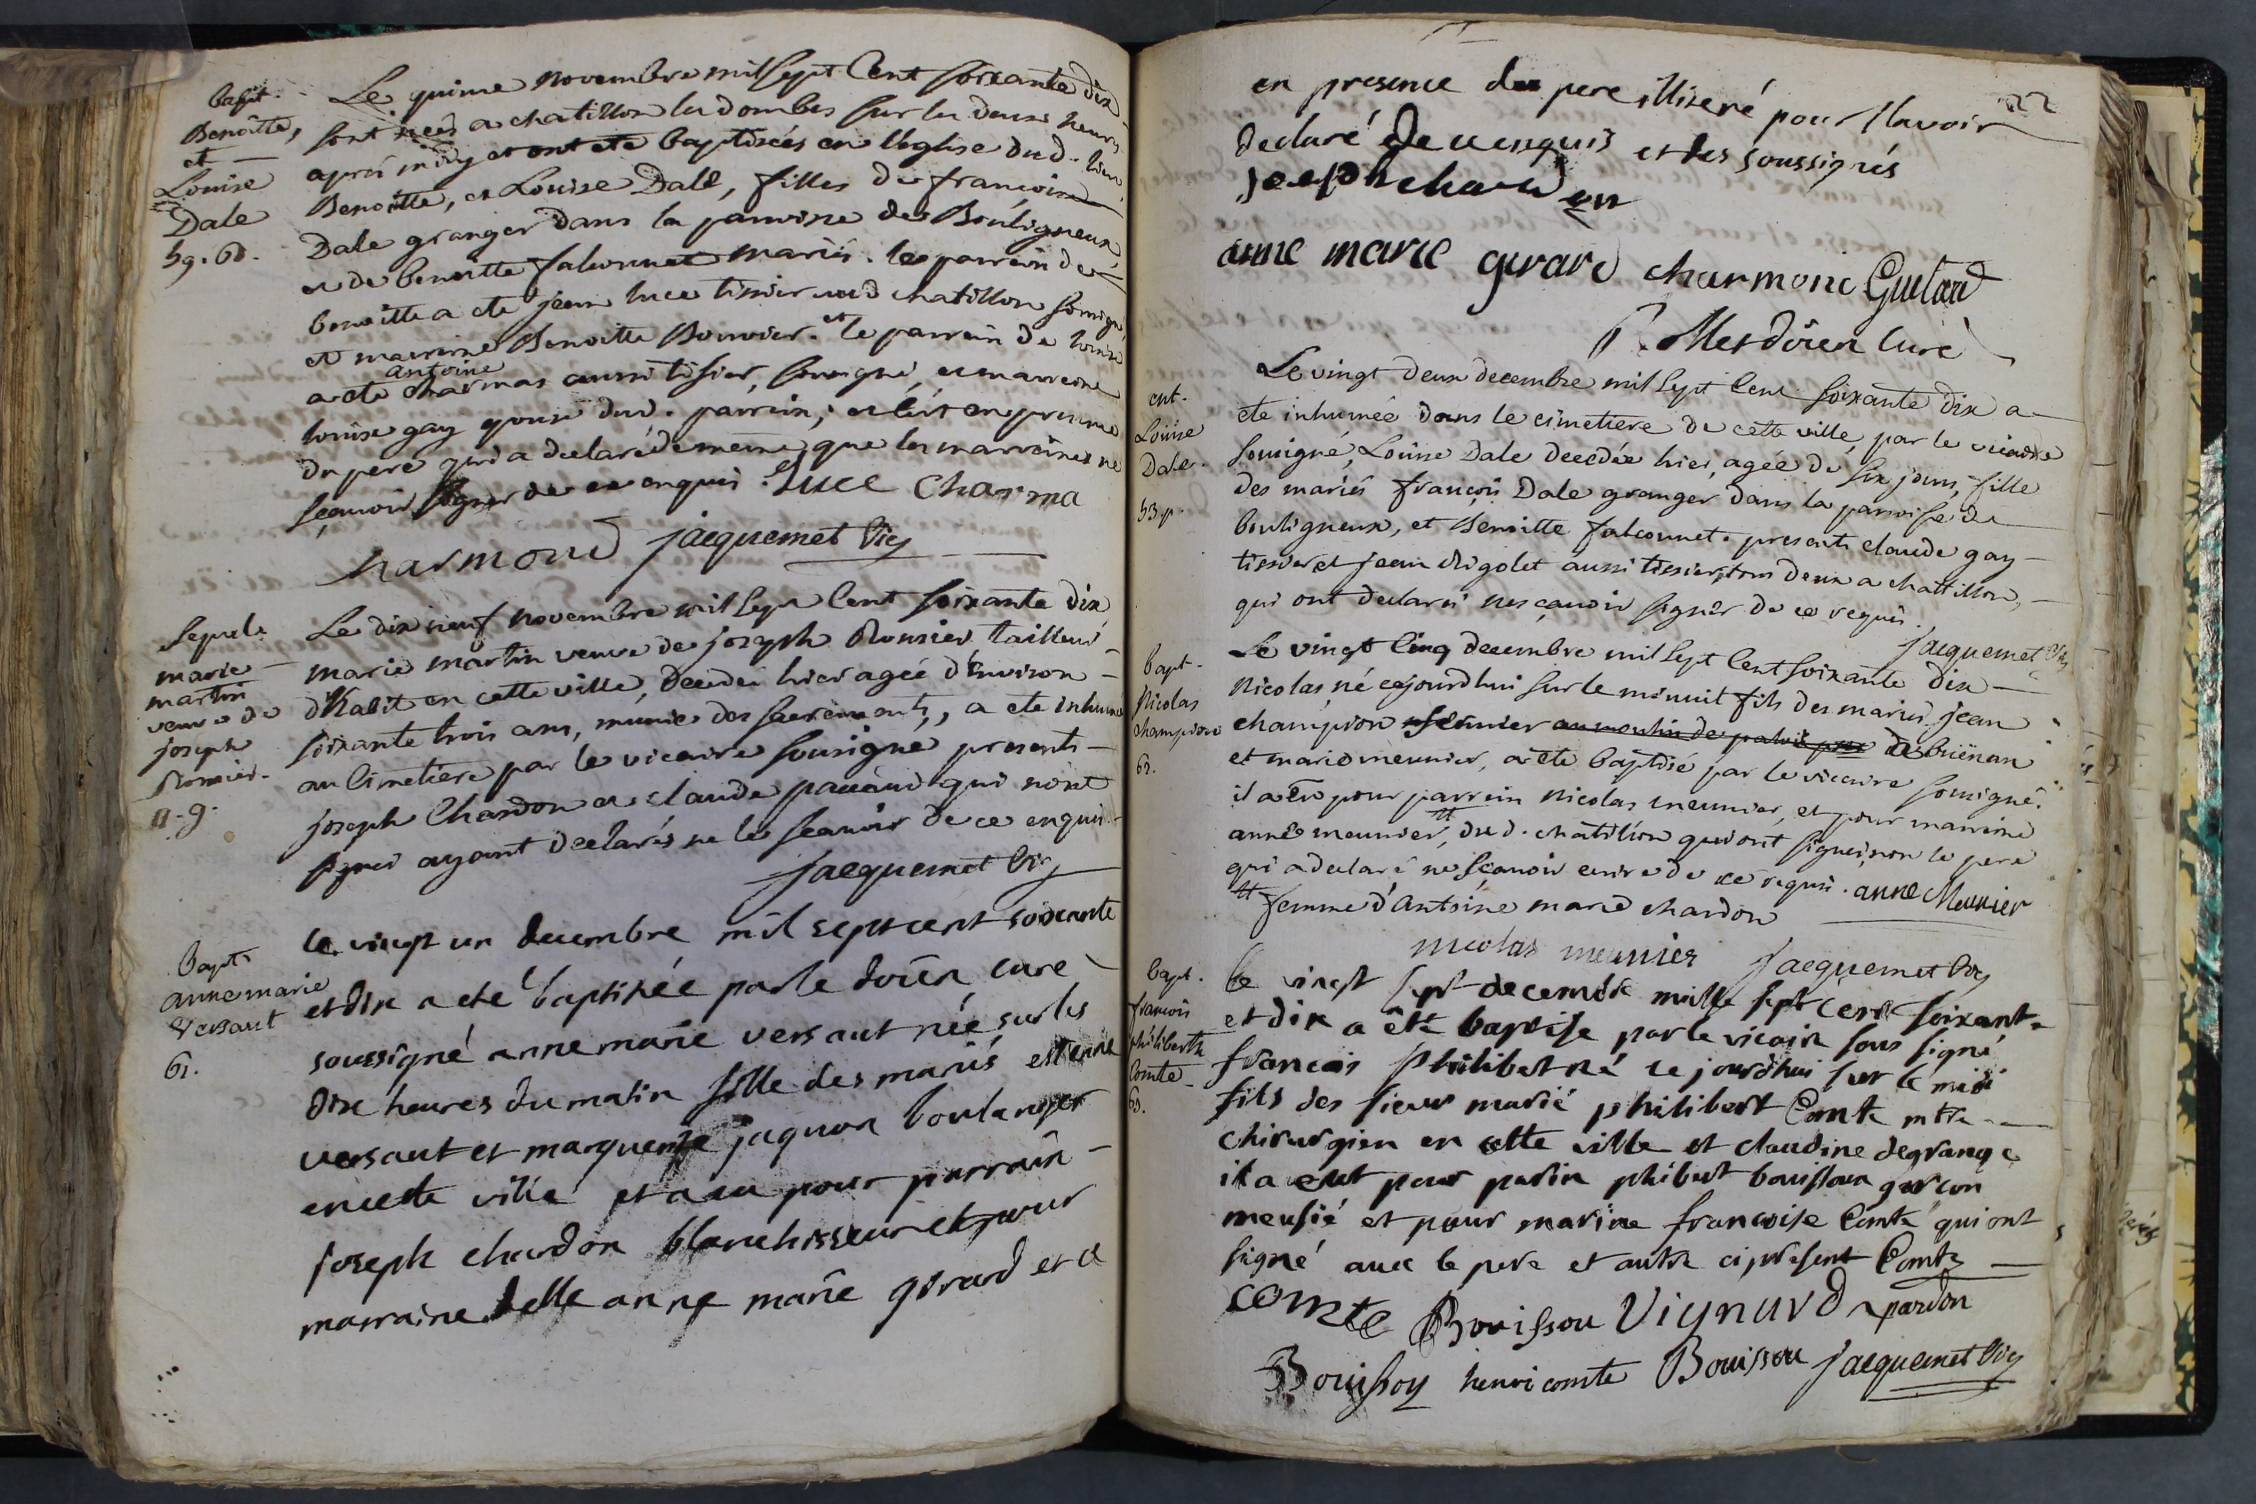 bapt.
Benoitte,
et
Louise
Dale
59. 60.
Le quinze novembre mil sept Cent soixante dix
sont nées a chatillon les dombes sur les deux heures
aprés midy et ont eté baptisées en l'église dud. lieu
Benoitte, et Louise Dale, filles de francoise
Dale granger dans la parroisse de Bouligneux,
et de benoitte falconnet mariés. le parrein de
benoitte a ete jean luce tissier aud chatillon soussigné
et marreine Benoitte Bouvier. et le parrein de louise
a ete antoine charmas aussi tissier, soussigné, et marreine
louise gay epouse dud. parrein; et le tout en presence
du pere qui a declaré de meme que les marreines ne
sçavoir signer de ce enquis. Luce Charma
harmond jacquemet Vic
Sepul.
marie
martin
veuve de
joseph
Monier.
11-9.
Le dix neuf novembre mil sept Cent soixante dix
marie martin veuve de joseph Monier tailleur
d'habit en cette ville, decedée hier agée d'environ
soixante trois ans, munie des sacrements, a ete inhumée
au Cimetiere par le vicaire soussigné presents
joseph Chardon et claude qui n'ont
signer ayant declarés ne le scavoir de ce enquis
jacquemet Vic
bapt
anne marie
Versaut
61.
le vingt un decembre mil sept cent soixante
et dix a eté baptisée par le doïen curé
soussigné anne marie versaut née sur les
dix heures du matin fille des mariés estienne
versaut et marguerite jaquon boulanger
en cette ville et a eu pour parrain
joseph chardon blanchisseur et pour
marraine delle anne marie girard et a
22
en presence du pere illiteré pour l'avoir
declaré de ce enquis et des soussignés
joseph chardon
anne marie girard charmonic Guetard
P. Mesdoien Curé
ent.
Louise
Dale.
53 p.
Le vingt deux decembre mil sept Cent soixante dix a
ete inhumée dans le cimetiere de cette ville, par le vicaire
soussigné, Louise Dale decedée hier, agée de six jours, fille
des mariés françois Dale granger dans la parroisse de
bouligneux, et Benoitte falconnet. presents claude gay
tissier et jean Rigolet aussi tissier, tous deux a chatillon,
qui ont declarés ne sçavoir signer de ce requis.
jacquemet Vic
bapt.
Nicolas
champion
62.
Le vingt Cinq decembre mil sept Cent soixante dix
Nicolas né cejourdhui sur le minuit fils des mariés jean
champion fermier au moulin de de brienan
et marie meunier, a ete baptisé par le vicaire soussigné.
il a eu pour parrein Nicolas meunier, et pour marreine
anne meunier, dud. chatillon qui ont signé, non le pere
qui a declaré ne sçavoir ecrire de ce requis. anne Meunier
femme d'Antoine marie chardon
nicolas meunier jacquemet Vic
bapt.
francois
philiberth
Comte
63.
Le vingt sept decembre mille sept cent soixante
et dix a êté baptise par le vicair sous signé
francois philibert né ce jourdhui sur le midi
fils des sieur marié philibert Comte mtre
chirurgien en cette ville et claudine degrange
il a eut pour parin philibert bouisson garcon
meusié et pour marine francoise Comte qui ont
signé avec le pere et autre ci present Comte
comte Bouissou Vignard pardon
Bouissoy henri comte Bouissou jacquemet Vic